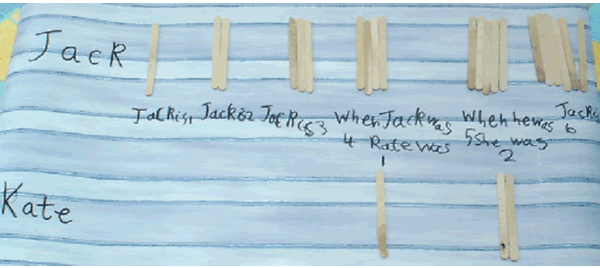 Jack
Jack is 1
Jack is 2
Jack is 3
When Jack was
4 Kate was
1
When he was
5 she was
2
Jack is
6
Kate